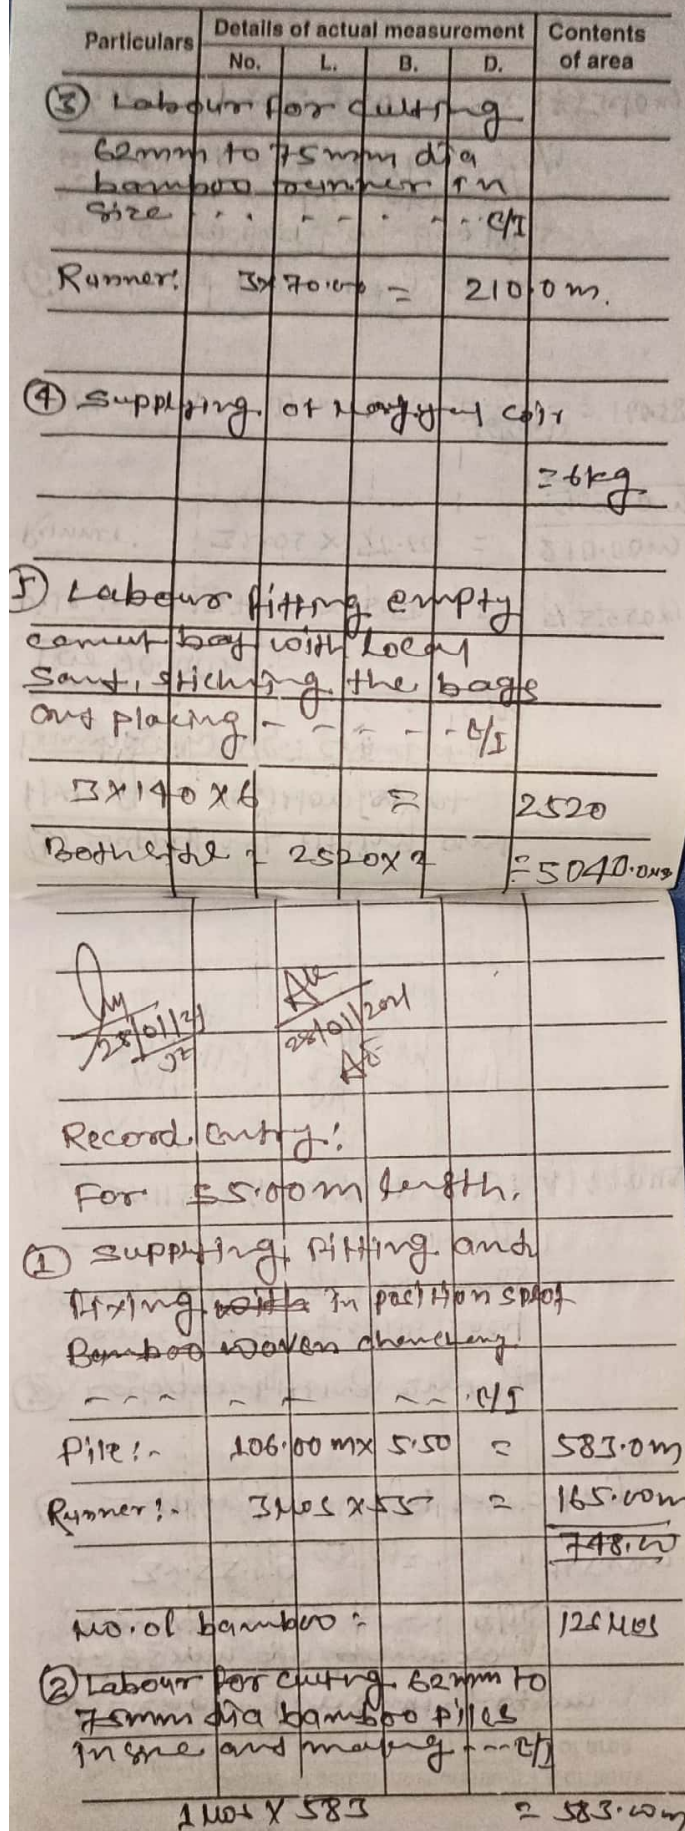 Particulars Details of actual measurement Contents of area
No. L. B. D.
③ Labour for cutting
62mm to 75mm dia
bamboo runner in
size - - - - - - C/I
Runner: 3x70.00 = 210.0m.
④ Supplying of coir
= 6kg
5) Labour fitting empty
cement bag with Local
Sand, stiching the bags
and placing - - - - - C/I
3x140x6 = 2520
2520x2 = 5040.0
28/01/21
28/01/2021
AE
Record Entry:
For 55.00m length.
① Supplying, Fitting and
Fixing in position
Bamboo woven
- - - - - - - - C/I
Pile:- 106.00 mx 5.50 = 583.0m
Runner:- 3Nos x 55 = 165.00m
748.00
No. of bamboo = Nos
② Labour for cutting 62mm to
75mm dia bamboo piles
in size and making - - - C/I
1 Nos X 583 = 583.00m